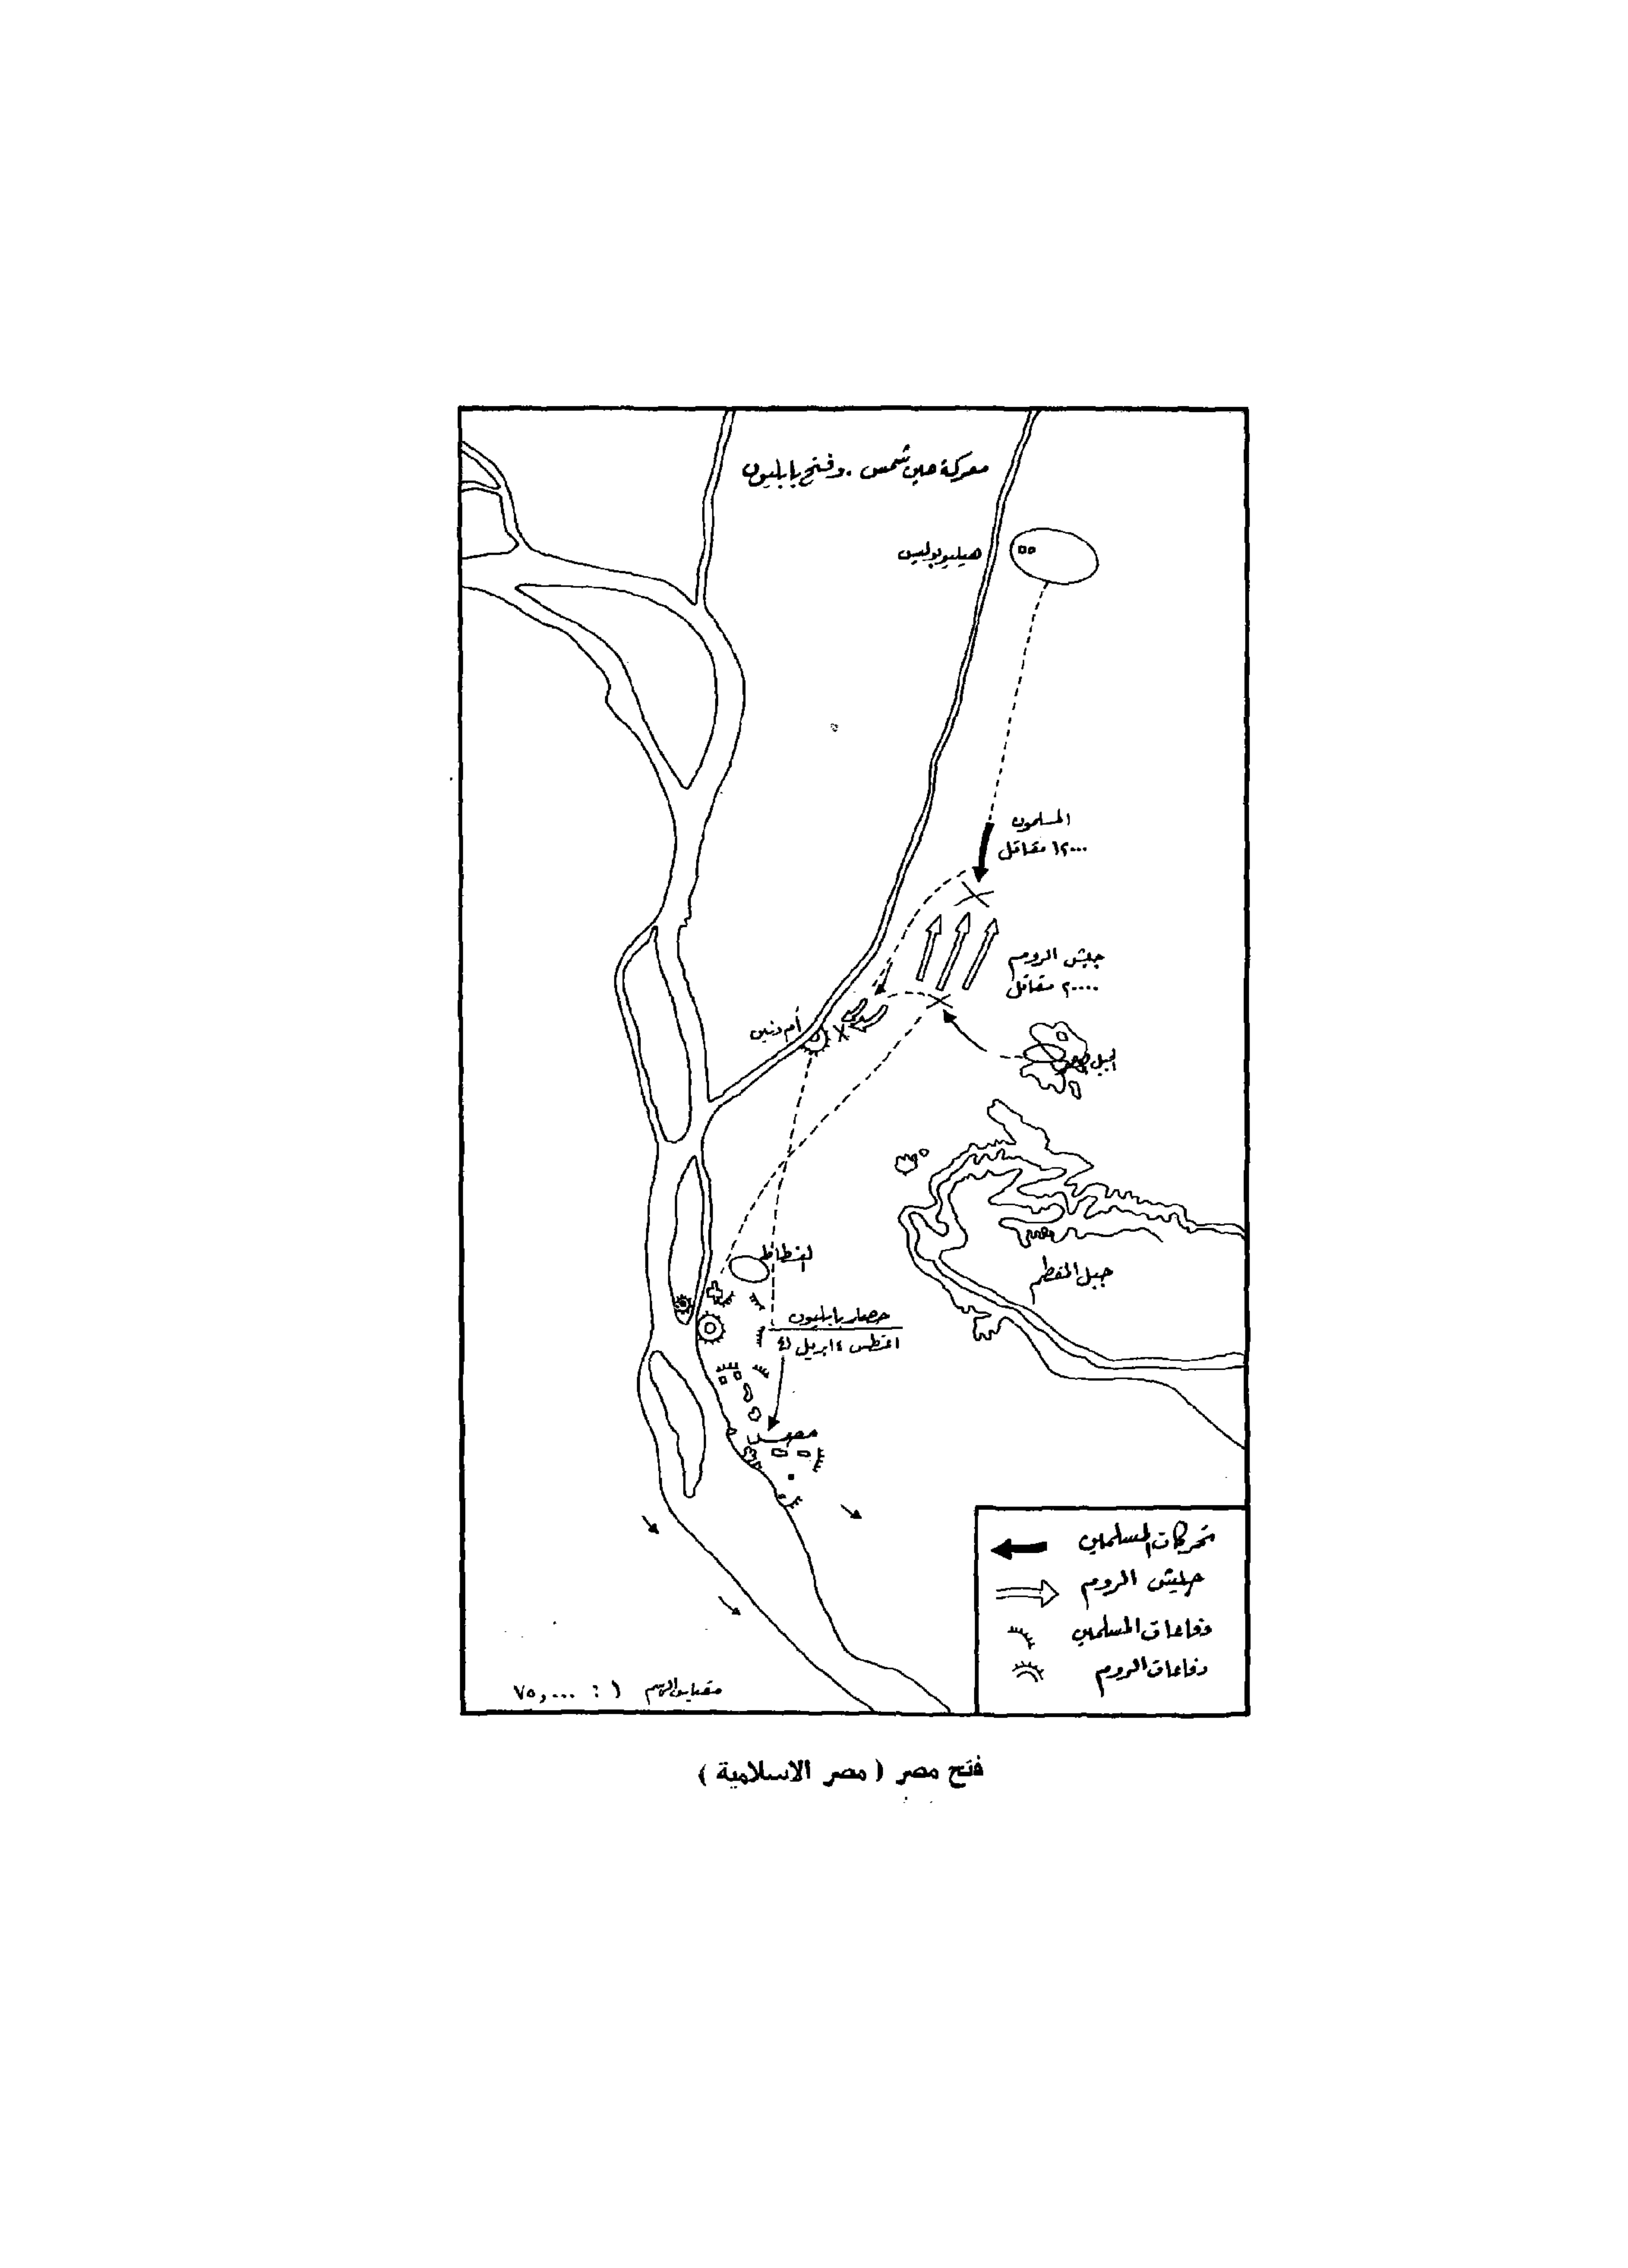 معركة عين شمس . وفتح بابليون
هيليوبوليس
المسلمون
١٢٠٠٠ مقاتل
جيش الروم
٢٠٠٠٠ مقاتل
أم دنين
الجبل
جبل المقطم
الفسطاط
حصار بابليون
اغسطس ٤ ابريل ٤١
مصر
تحركات المسلمين
جيش الروم
دفاعات المسلمين
دفاعات الروم
مقياس الرسم ١ : ٧٥,٠٠٠
فتح مصر ( مصر الاسلامية )